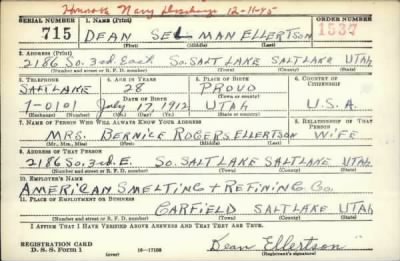 Honor Navy Discharge 12-11-45
SERIAL NUMBER 1. NAME (Print) ORDER NUMBER
715 DEAN SELMAN ELLERTSON 1537
(First) (Middle) (Last)
2. ADDRESS (Print)
2186 So. 3rd. East So. SALT LAKE SALTLAKE UTAH
(Number and street or R. F. D. number) (Town) (County) (State)
3. TELEPHONE 4. AGE IN YEARS 5. PLACE OF BIRTH 6. COUNTRY OF CITIZENSHIP
SALTLAKE 28 PROVO
DATE OF BIRTH (Town or county)
7-0101 July 17, 1912 UTAH U.S.A.
(Exchange) (Number) (Mo.) (Day) (Yr.) (State or country)
7. NAME OF PERSON WHO WILL ALWAYS KNOW YOUR ADDRESS 8. RELATIONSHIP OF THAT PERSON
MRS. BERNICE ROGERS ELLERTSON WIFE
(Mr., Mrs., Miss) (First) (Middle) (Last)
9. ADDRESS OF THAT PERSON
2186 So. 3rd. E. So. SALT LAKE SALTLAKE UTAH
(Number and street or R. F. D. number) (Town) (County) (State)
10. EMPLOYER'S NAME
AMERICAN SMELTING + REFINING Co.
11. PLACE OF EMPLOYMENT OR BUSINESS
GARFIELD SALTLAKE UTAH
(Number and street or R. F. D. number) (Town) (County) (State)
I AFFIRM THAT I HAVE VERIFIED ABOVE ANSWERS AND THAT THEY ARE TRUE.
REGISTRATION CARD
D. S. S. Form 1 (over) 16-17105
Dean Ellertson
(Registrant's signature)